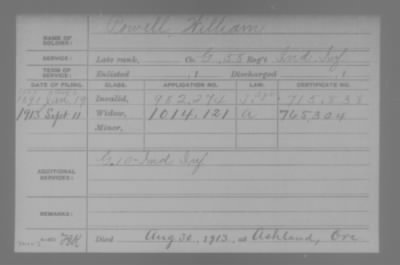 NAME OF SOLDIER: Powell William
SERVICE: Late rank, Co. G, 58 Reg't Ind Inf
TERM OF SERVICE: Enlisted , 1 Discharged , 1
DATE OF FILING. CLASS. APPLICATION NO. LAW. CERTIFICATE NO.
1891 Jan 19 Invalid, 982,274 715,838
1913 Sept 11 Widow, 1014,121 a 765,304
Minor,
ADDITIONAL SERVICES: G 10 Ind Inf
REMARKS:
Died Aug 30, 1913, at Ashland, Ore